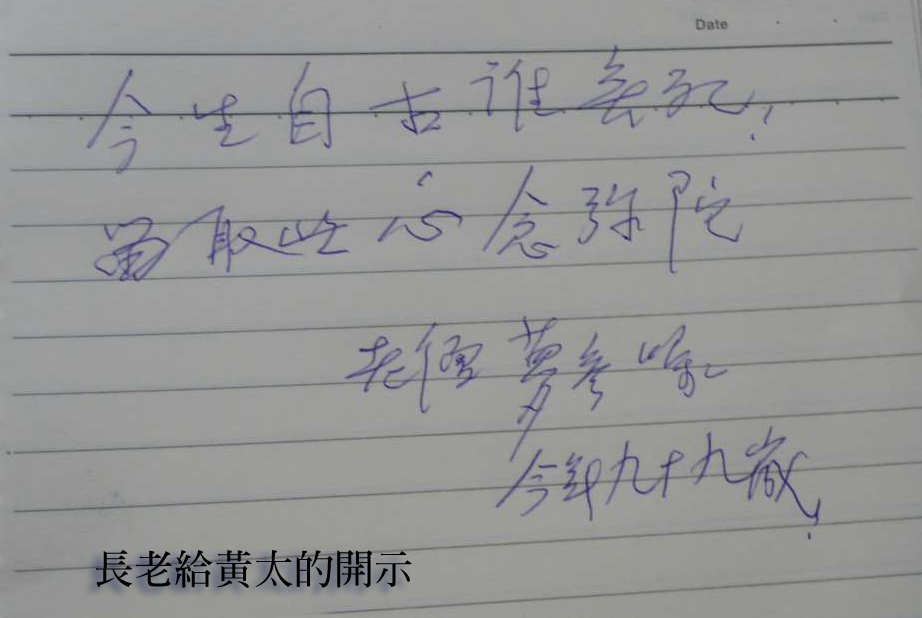 Date
今生自古谁無死！
留取此心念弥陀
老僧夢参
今年九十九歲！
長老給黃太的開示